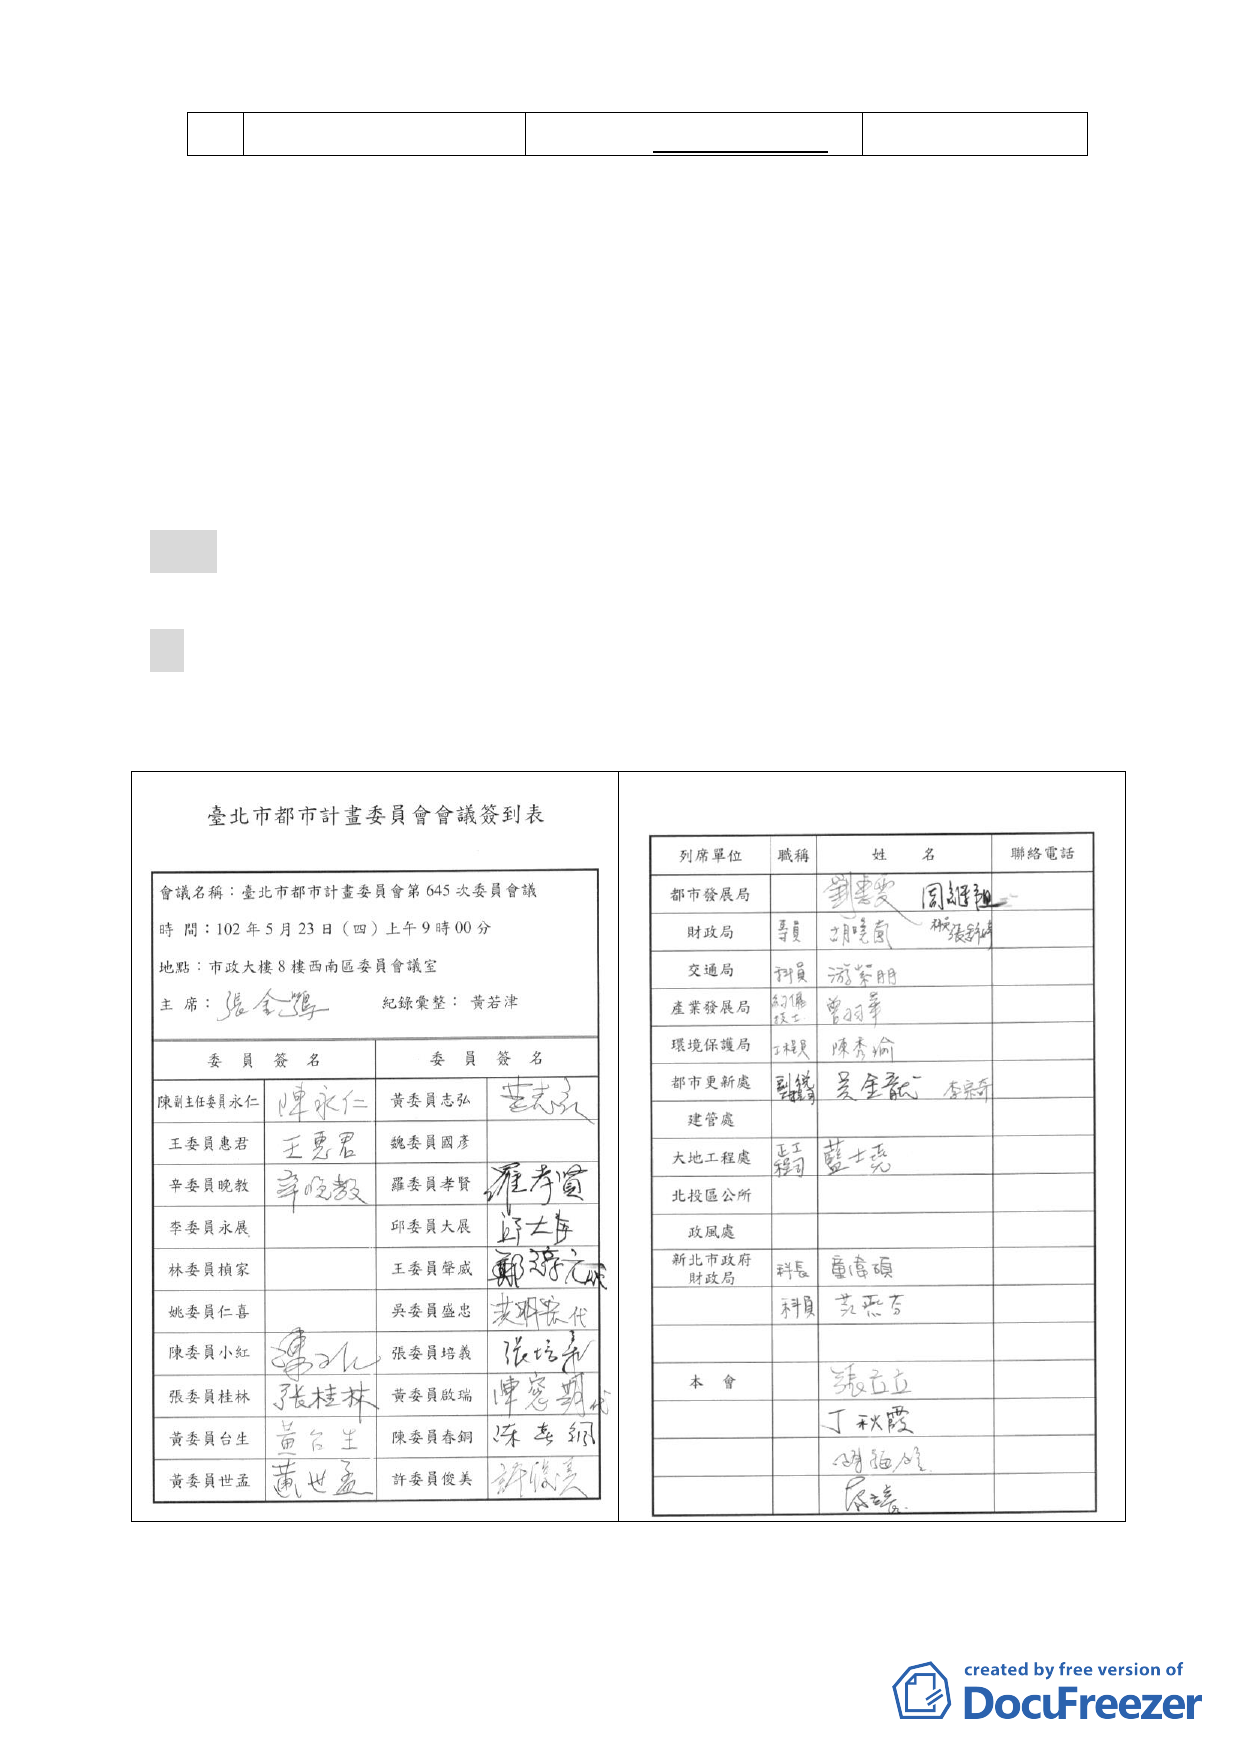 臺北市都市計畫委員會會議簽到表
會議名稱：臺北市都市計畫委員會第 645 次委員會議
時 間：102 年 5 月 23 日（四）上午 9 時 00 分
地點：市政大樓 8 樓西南區委員會議室
主 席： 張金鶚 紀錄彙整： 黃若津
委 員 簽 名 委 員 簽 名
陳副主任委員永仁 陳永仁 黃委員志弘 黃志弘
王委員惠君 王惠君 魏委員國彥
辛委員晚教 辛晚教 羅委員孝賢 羅孝賢
李委員永展 邱委員大展 邱大展
林委員楨家 王委員聲威
姚委員仁喜 吳委員盛忠 代
陳委員小紅 張委員培義 張培義
張委員桂林 張桂林 黃委員啟瑞 代
黃委員台生 黃台生 陳委員春銅 陳春銅
黃委員世孟 黃世孟 許委員俊美 許俊美
列席單位 職稱 姓 名 聯絡電話
都市發展局 劉惠雯
財政局 專員 胡曉嵐
交通局 科員
產業發展局 約僱技士 曾羽華
環境保護局 工程員 陳秀瑜
都市更新處 吳金龍 李宗奇
建管處
大地工程處 正工程司 藍士堯
北投區公所
政風處
新北市政府財政局 科長 童偉碩
科員
本 會 張立立
丁秋霞
created by free version of
DocuFreezer